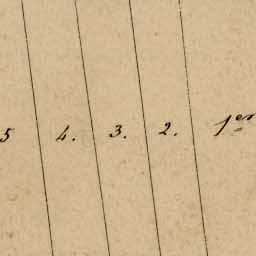 5 4. 3. 2. 1er